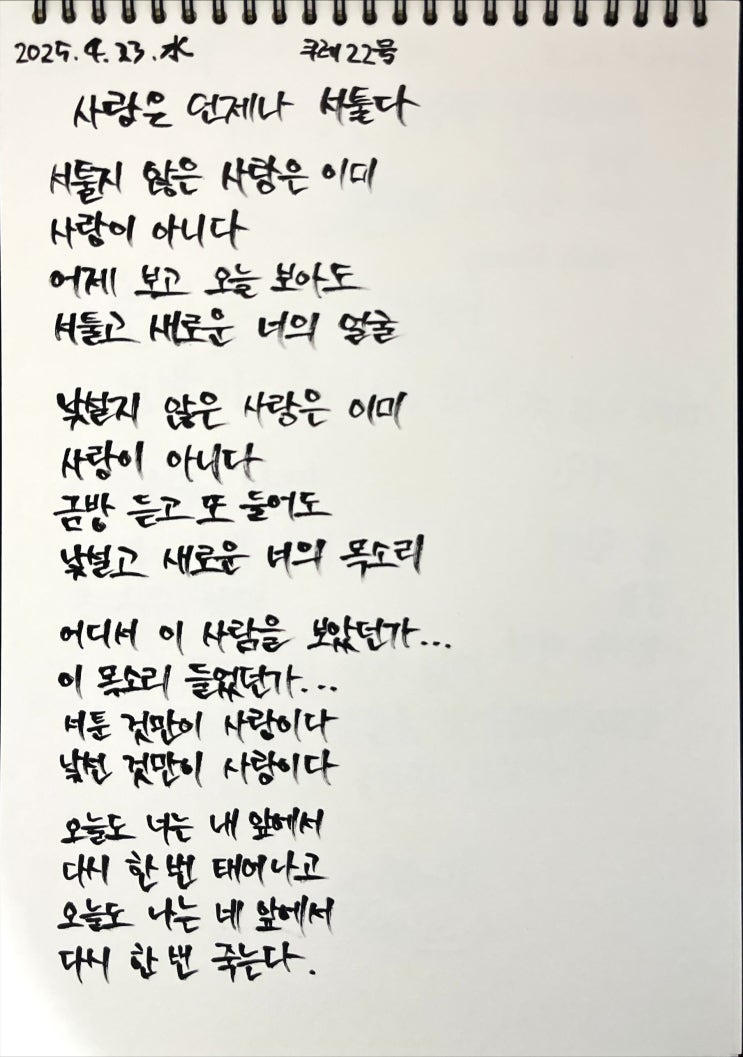 2025. 4. 23. 水 쿠레 22号
사랑은 언제나 서툴다
서툴지 않은 사랑은 이미
사랑이 아니다
어제 보고 오늘 보아도
서툴고 새로운 너의 얼굴
낯설지 않은 사랑은 이미
사랑이 아니다
금방 듣고 또 들어도
낯설고 새로운 너의 목소리
어디서 이 사람을 보았던가...
이 목소리 들었던가...
서툰 것만이 사랑이다
낯선 것만이 사랑이다
오늘도 너는 내 앞에서
다시 한 번 태어나고
오늘도 나는 네 앞에서
다시 한 번 죽는다.